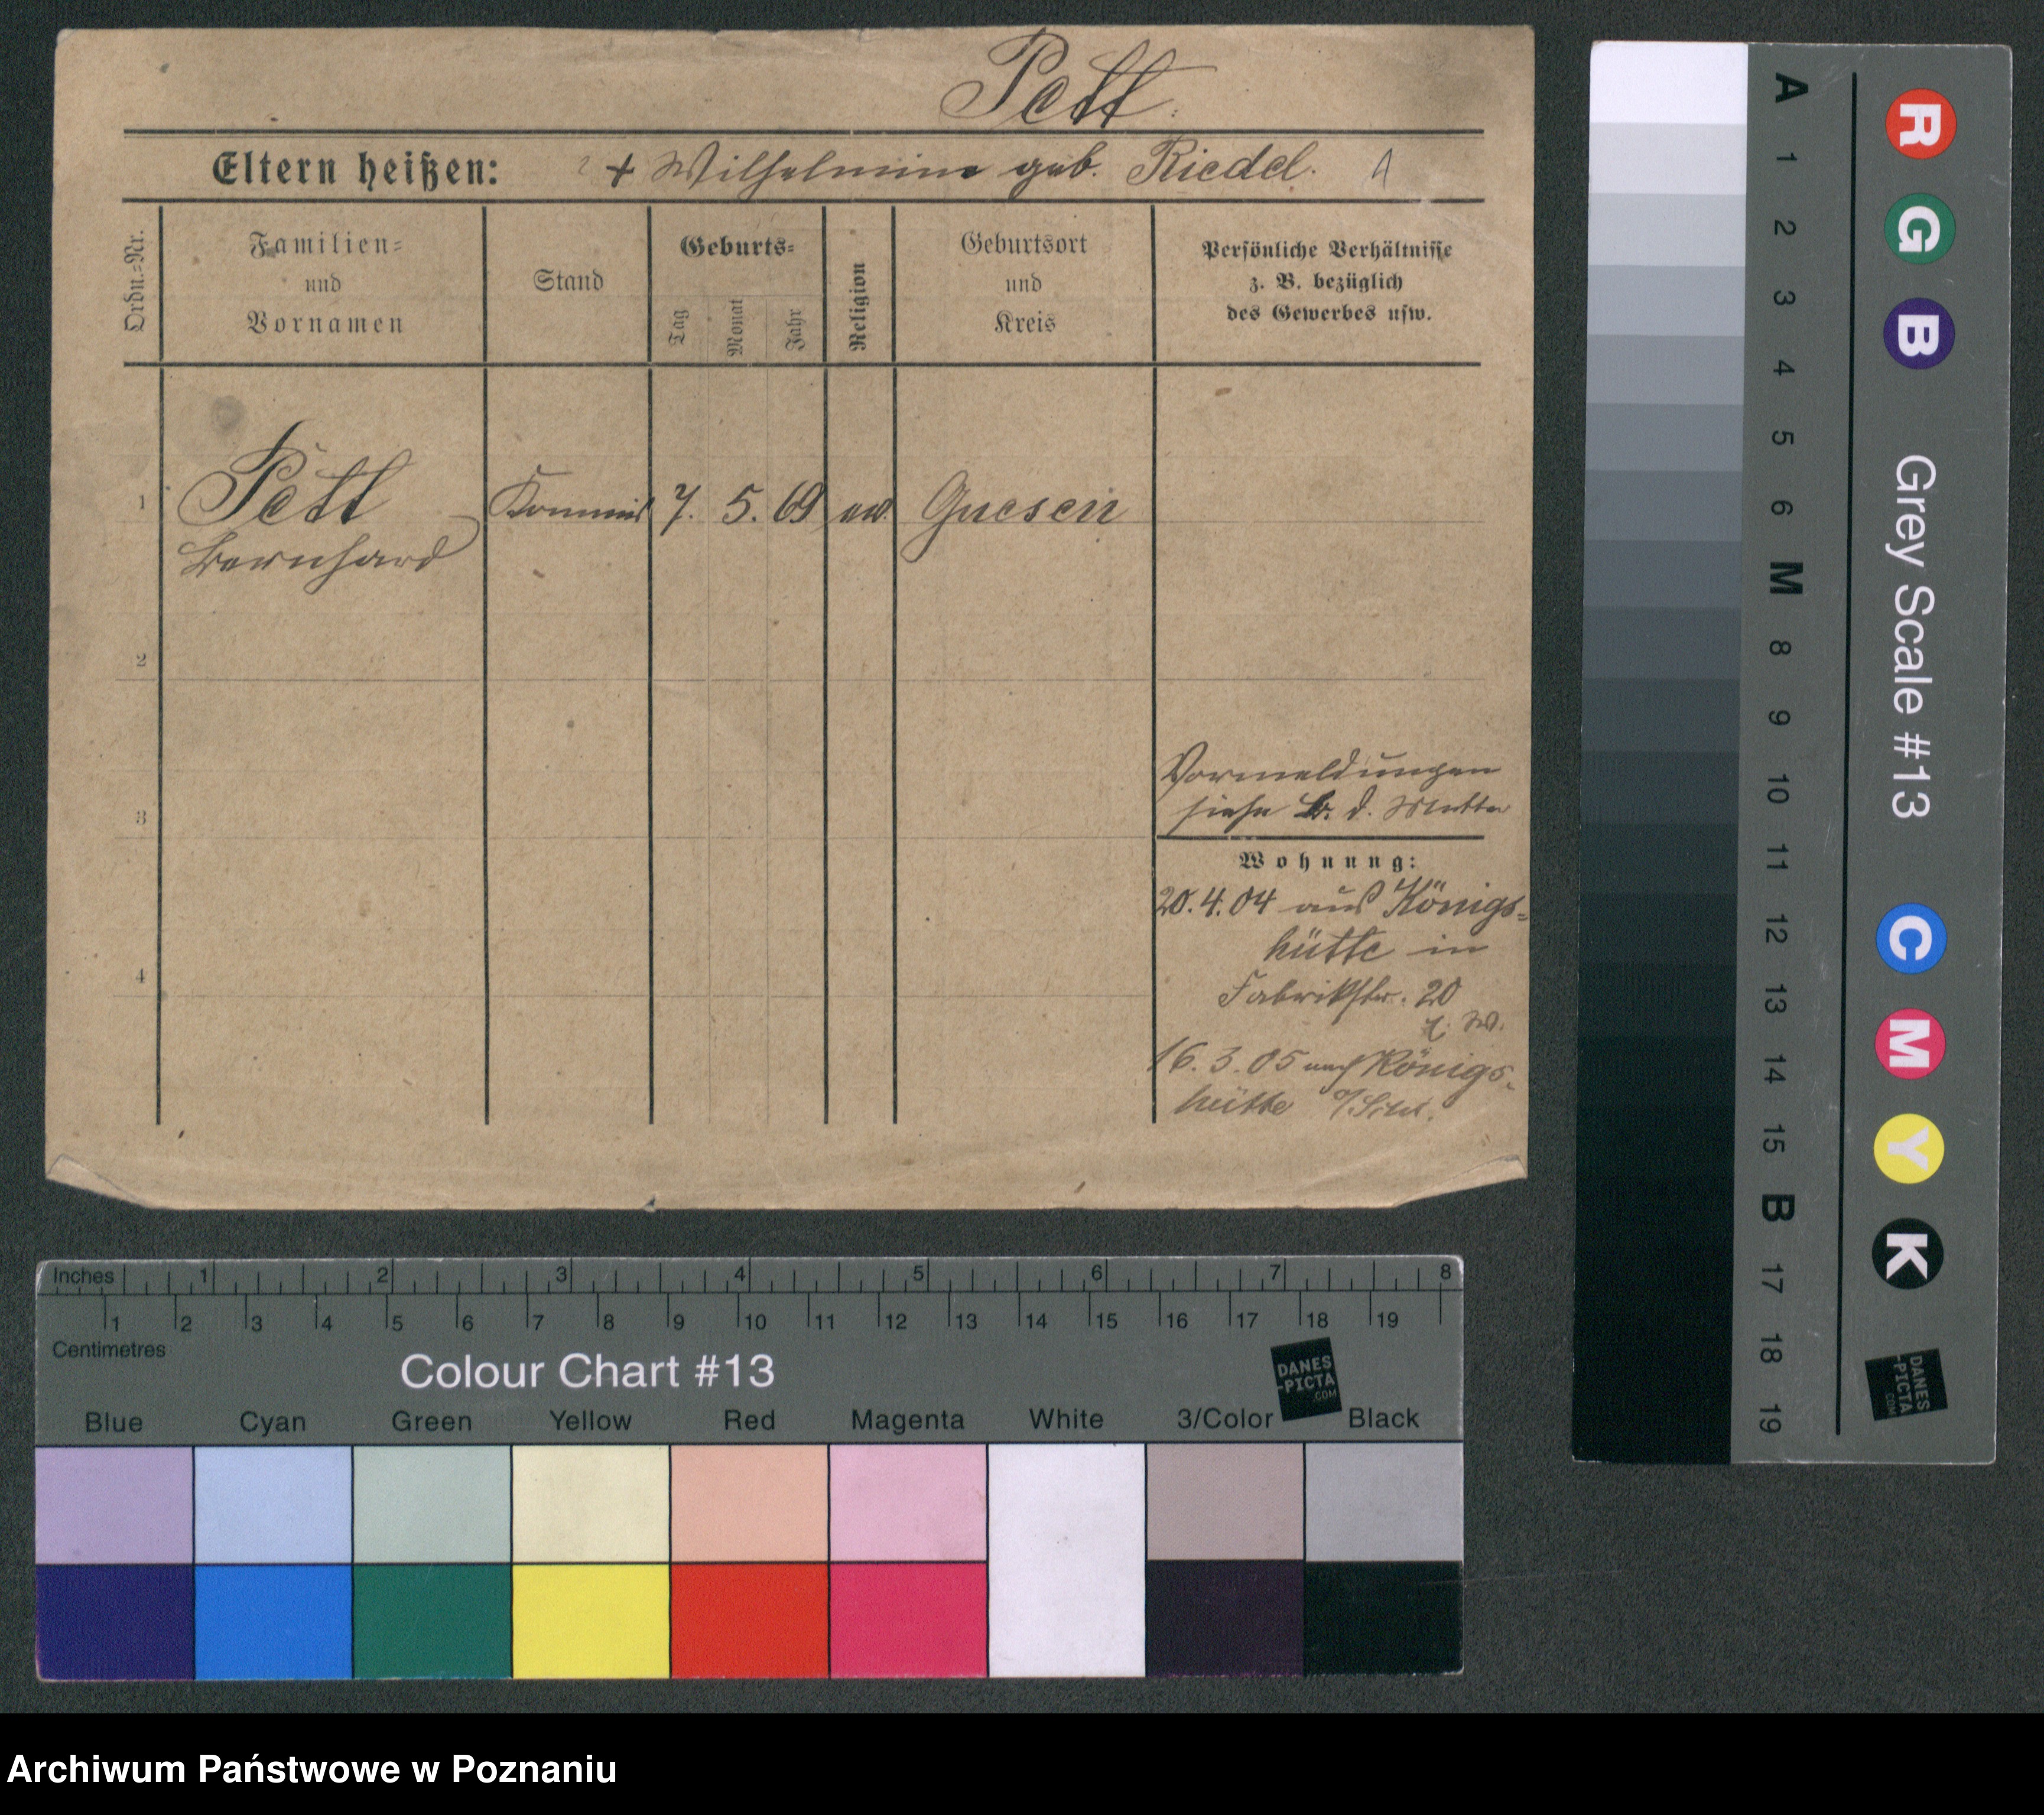 Pett.
Eltern heißen: ? + Wilhelmine geb. Riedel.
Ordn.=Nr.
Familien=
und
Vornamen
Stand
Geburts=
Tag
Monat
Jahr
Religion
Geburtsort
und
Kreis
Persönliche Verhältnisse
z. B. bezüglich
des Gewerbes usw.
1 Pett Kommis 7. 5. 69 ev. Gnesen
Bernhard
2
3
4
Vormeldungen
siehe b. d. Mutter
Wohnung:
20.4.04 aus Königs=
hütte in
Fabrikstr. 20
b. W.
16.3.05 nach Königs-
hütte O/Schl.
A
1
2
3
4
5
6
M
8
9
10
11
12
13
14
15
B
17
18
19
R
G
B
Grey Scale #13
C
M
Y
K
DANES
-PICTA
.COM
Inches 1 2 3 4 5 6 7 8
1 2 3 4 5 6 7 8 9 10 11 12 13 14 15 16 17 18 19
Centimetres
Colour Chart #13
DANES
-PICTA
.COM
Blue Cyan Green Yellow Red Magenta White 3/Color Black
Archiwum Państwowe w Poznaniu